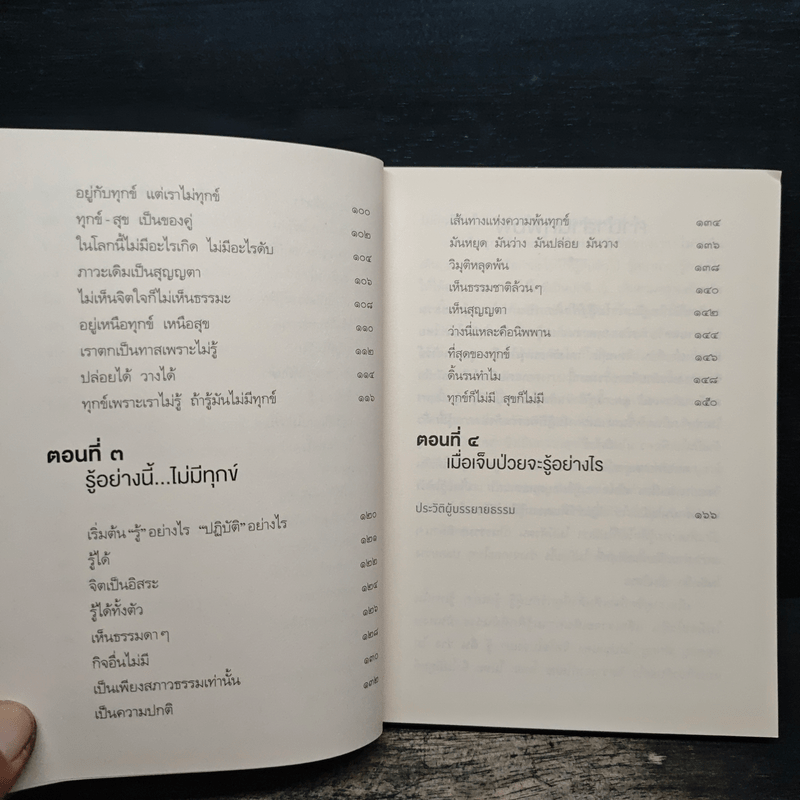 อยู่กับทุกข์ แต่เราไม่ทุกข์ ๑๐๐
ทุกข์-สุข เป็นของคู่ ๑๐๒
ในโลกนี้ไม่มีอะไรเกิด ไม่มีอะไรดับ ๑๐๔
ภาวะเดิมเป็นสุญญตา ๑๐๖
ไม่เห็นจิตใจก็ไม่เห็นธรรมะ ๑๐๘
อยู่เหนือทุกข์ เหนือสุข ๑๑๐
เราตกเป็นทาสเพราะไม่รู้ ๑๑๒
ปล่อยได้ วางได้ ๑๑๔
ทุกข์เพราะเราไม่รู้ ถ้ารู้มันไม่มีทุกข์ ๑๑๖
ตอนที่ ๓
รู้อย่างนี้...ไม่มีทุกข์
เริ่มต้น “รู้” อย่างไร “ปฏิบัติ” อย่างไร ๑๒๐
รู้ได้ ๑๒๑
จิตเป็นอิสระ ๑๒๒
รู้ได้ทั้งตัว ๑๒๔
เห็นธรรมดาๆ ๑๒๖
กิจอื่นไม่มี ๑๒๘
เป็นเพียงสภาวธรรมเท่านั้น ๑๓๐
เป็นความปกติ ๑๓๒
เส้นทางแห่งความพ้นทุกข์ ๑๓๔
มันหยุด มันว่าง มันปล่อย มันวาง ๑๓๖
วิมุติหลุดพ้น ๑๓๘
เห็นธรรมชาติล้วนๆ ๑๔๐
เห็นสุญญตา ๑๔๒
ว่างนี่แหละคือนิพพาน ๑๔๔
ที่สุดของทุกข์ ๑๔๖
ดิ้นรนทำไม ๑๔๘
ทุกข์ก็ไม่มี สุขก็ไม่มี ๑๕๐
ตอนที่ ๔
เมื่อเจ็บป่วยจะรู้อย่างไร
ประวัติผู้บรรยายธรรม ๑๖๖